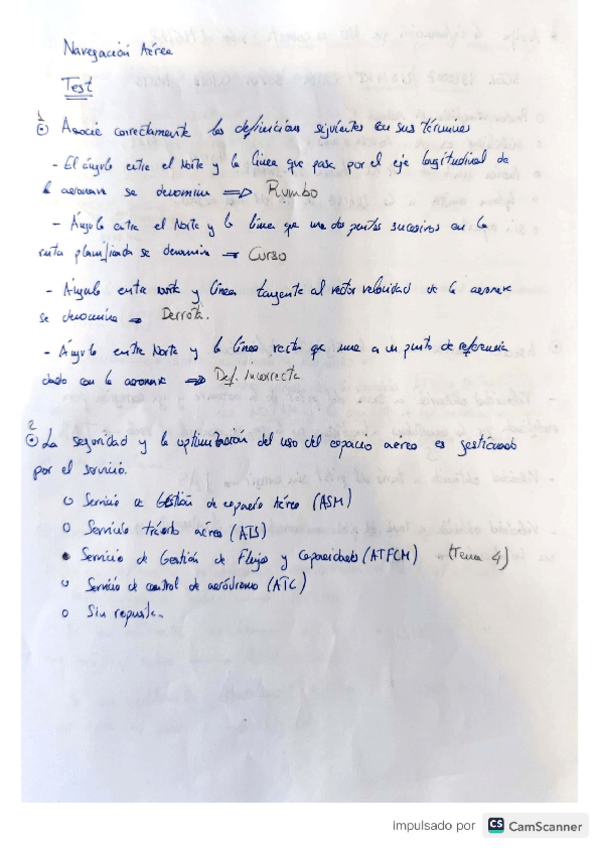 Navegación Aérea
Test
1
Asocie correctamente las definiciones siguientes con sus términos
- El ángulo entre el Norte y la línea que pasa por el eje longitudinal de
la aeronave se denomina => Rumbo
- Ángulo entre el Norte y la línea que une dos puntos sucesivos en la
ruta planificada se denomina → Curso
- Ángulo entre norte y línea tangente al vector velocidad de la aeronave
se denomina → Derrota.
- Ángulo entre Norte y la línea recta que une a un punto de referencia
dado con la aeronave => Def. incorrecta
2
La seguridad y la optimización del uso del espacio aéreo es gestionado
por el servicio.
o Servicio de Gestión de espacio Aéreo (ASM)
o Servicio tránsito aéreo (ATS)
• Servicio de Gestión de Flujo y Capacidades (ATFCM) (Tema 4)
o Servicio de control de aeródromo (ATC)
o Sin repuesta.
impulsado por CS CamScanner